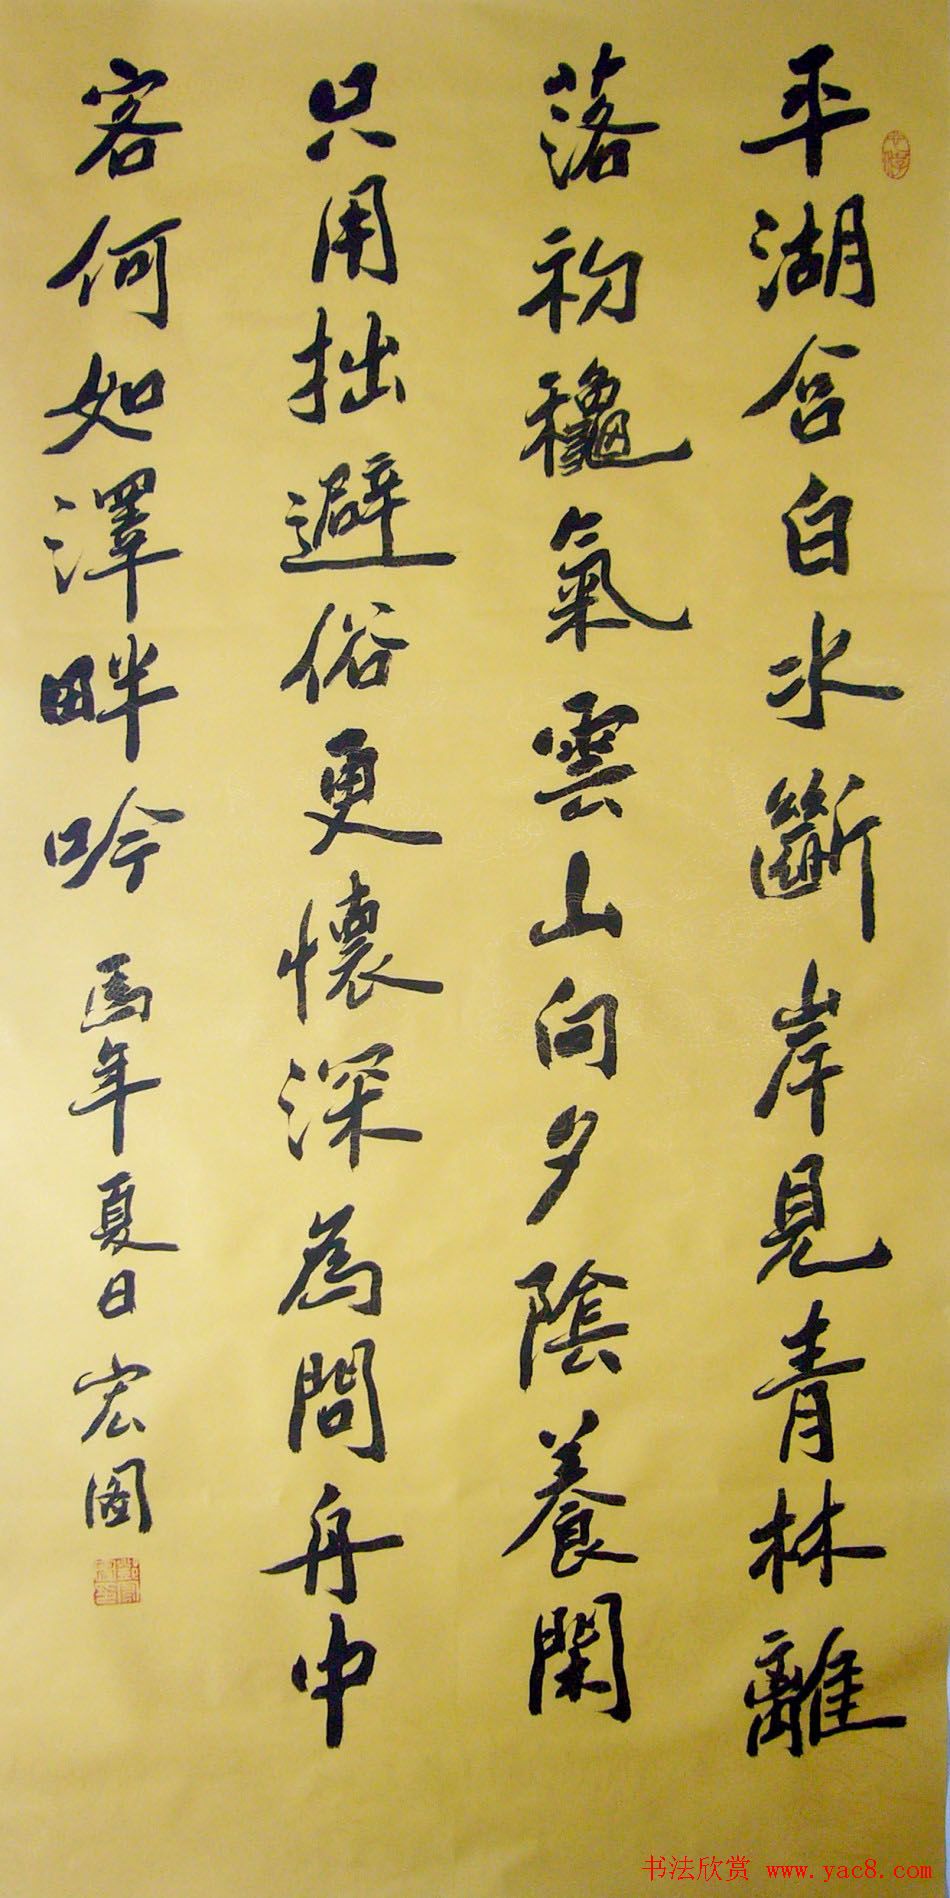 平湖含白水斷岸見青林離
落初龝氣雲山向夕陰養閑
只用拙避俗更懷深為問舟中
客何如澤畔吟 馬年夏日宏圖
书法欣赏 www.yac8.com